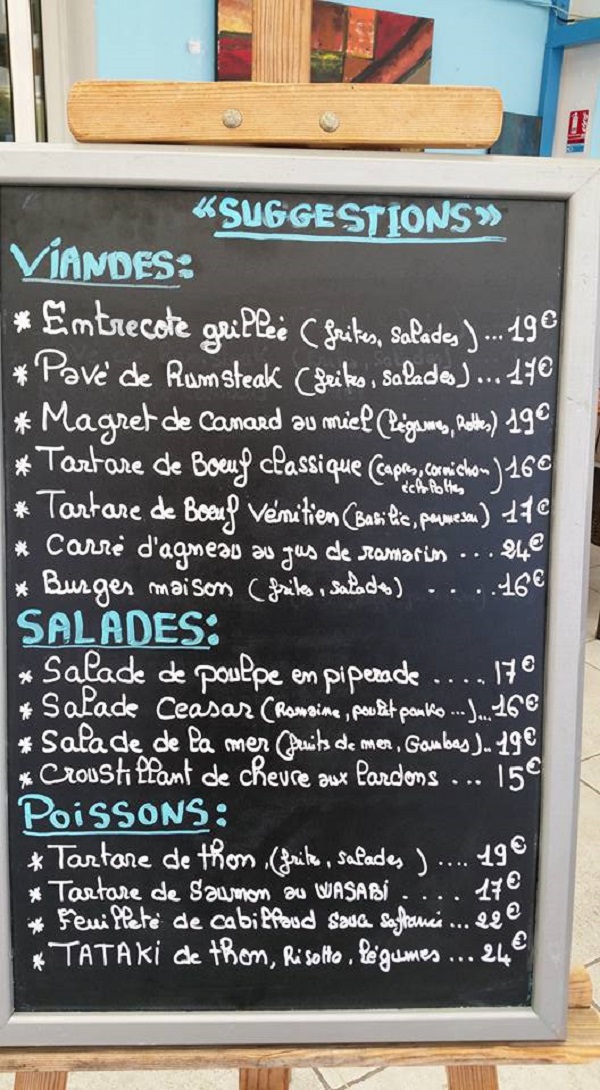 “SUGGESTIONS”
VIANDES:
* Entrecote grillée (frites, salades)...19€
* Pavé de Rumsteak (frites, salades)...17€
* Magret de canard au miel (légumes,) 19€
* Tartare de Boeuf classique (capres, cornichon) 16€
* Tartare de Boeuf Vénitien (Basilic, parmesan) 17€
* Carré d'agneau au jus de romarin ... 24€
* Burger maison (frites, salades) ....16€
SALADES:
* Salade de poulpe en piperade ....17€
* Salade Ceasar (Romaine, poulet panko ...)...16€
* Salade de la mer (fruits de mer, Gambas)..19€
* Croustillant de chevre aux lardons ... 15€
POISSONS:
* Tartare de thon, (frite, salades ) .... 19€
* Tartare de Saumon au WASABI .... 17€
* Feuilleté de cabillaud ... 22€
* TATAKI de thon, Risotto, légumes ... 24€